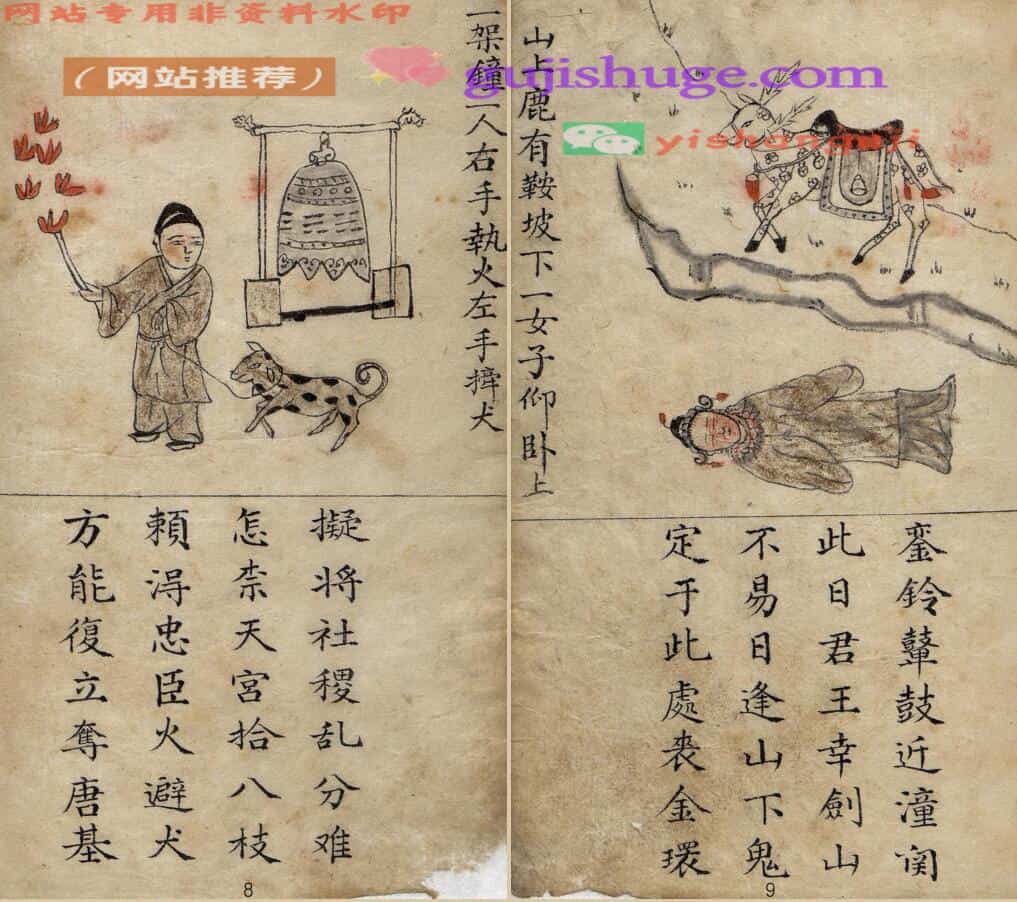 网站专用非资料水印
（网站推荐）
gujishuge.com
一架鐘一人右手執火左手撁犬
擬將社稷乱分难
怎柰天宮拾八枝
頼淂忠臣火避犬
方能復立奪唐基
8
山上鹿有鞍坡下一女子仰卧上
銮鈴鼙鼓近潼関
此日君王幸劍山
不易日逢山下鬼
定于此處丧金環
9